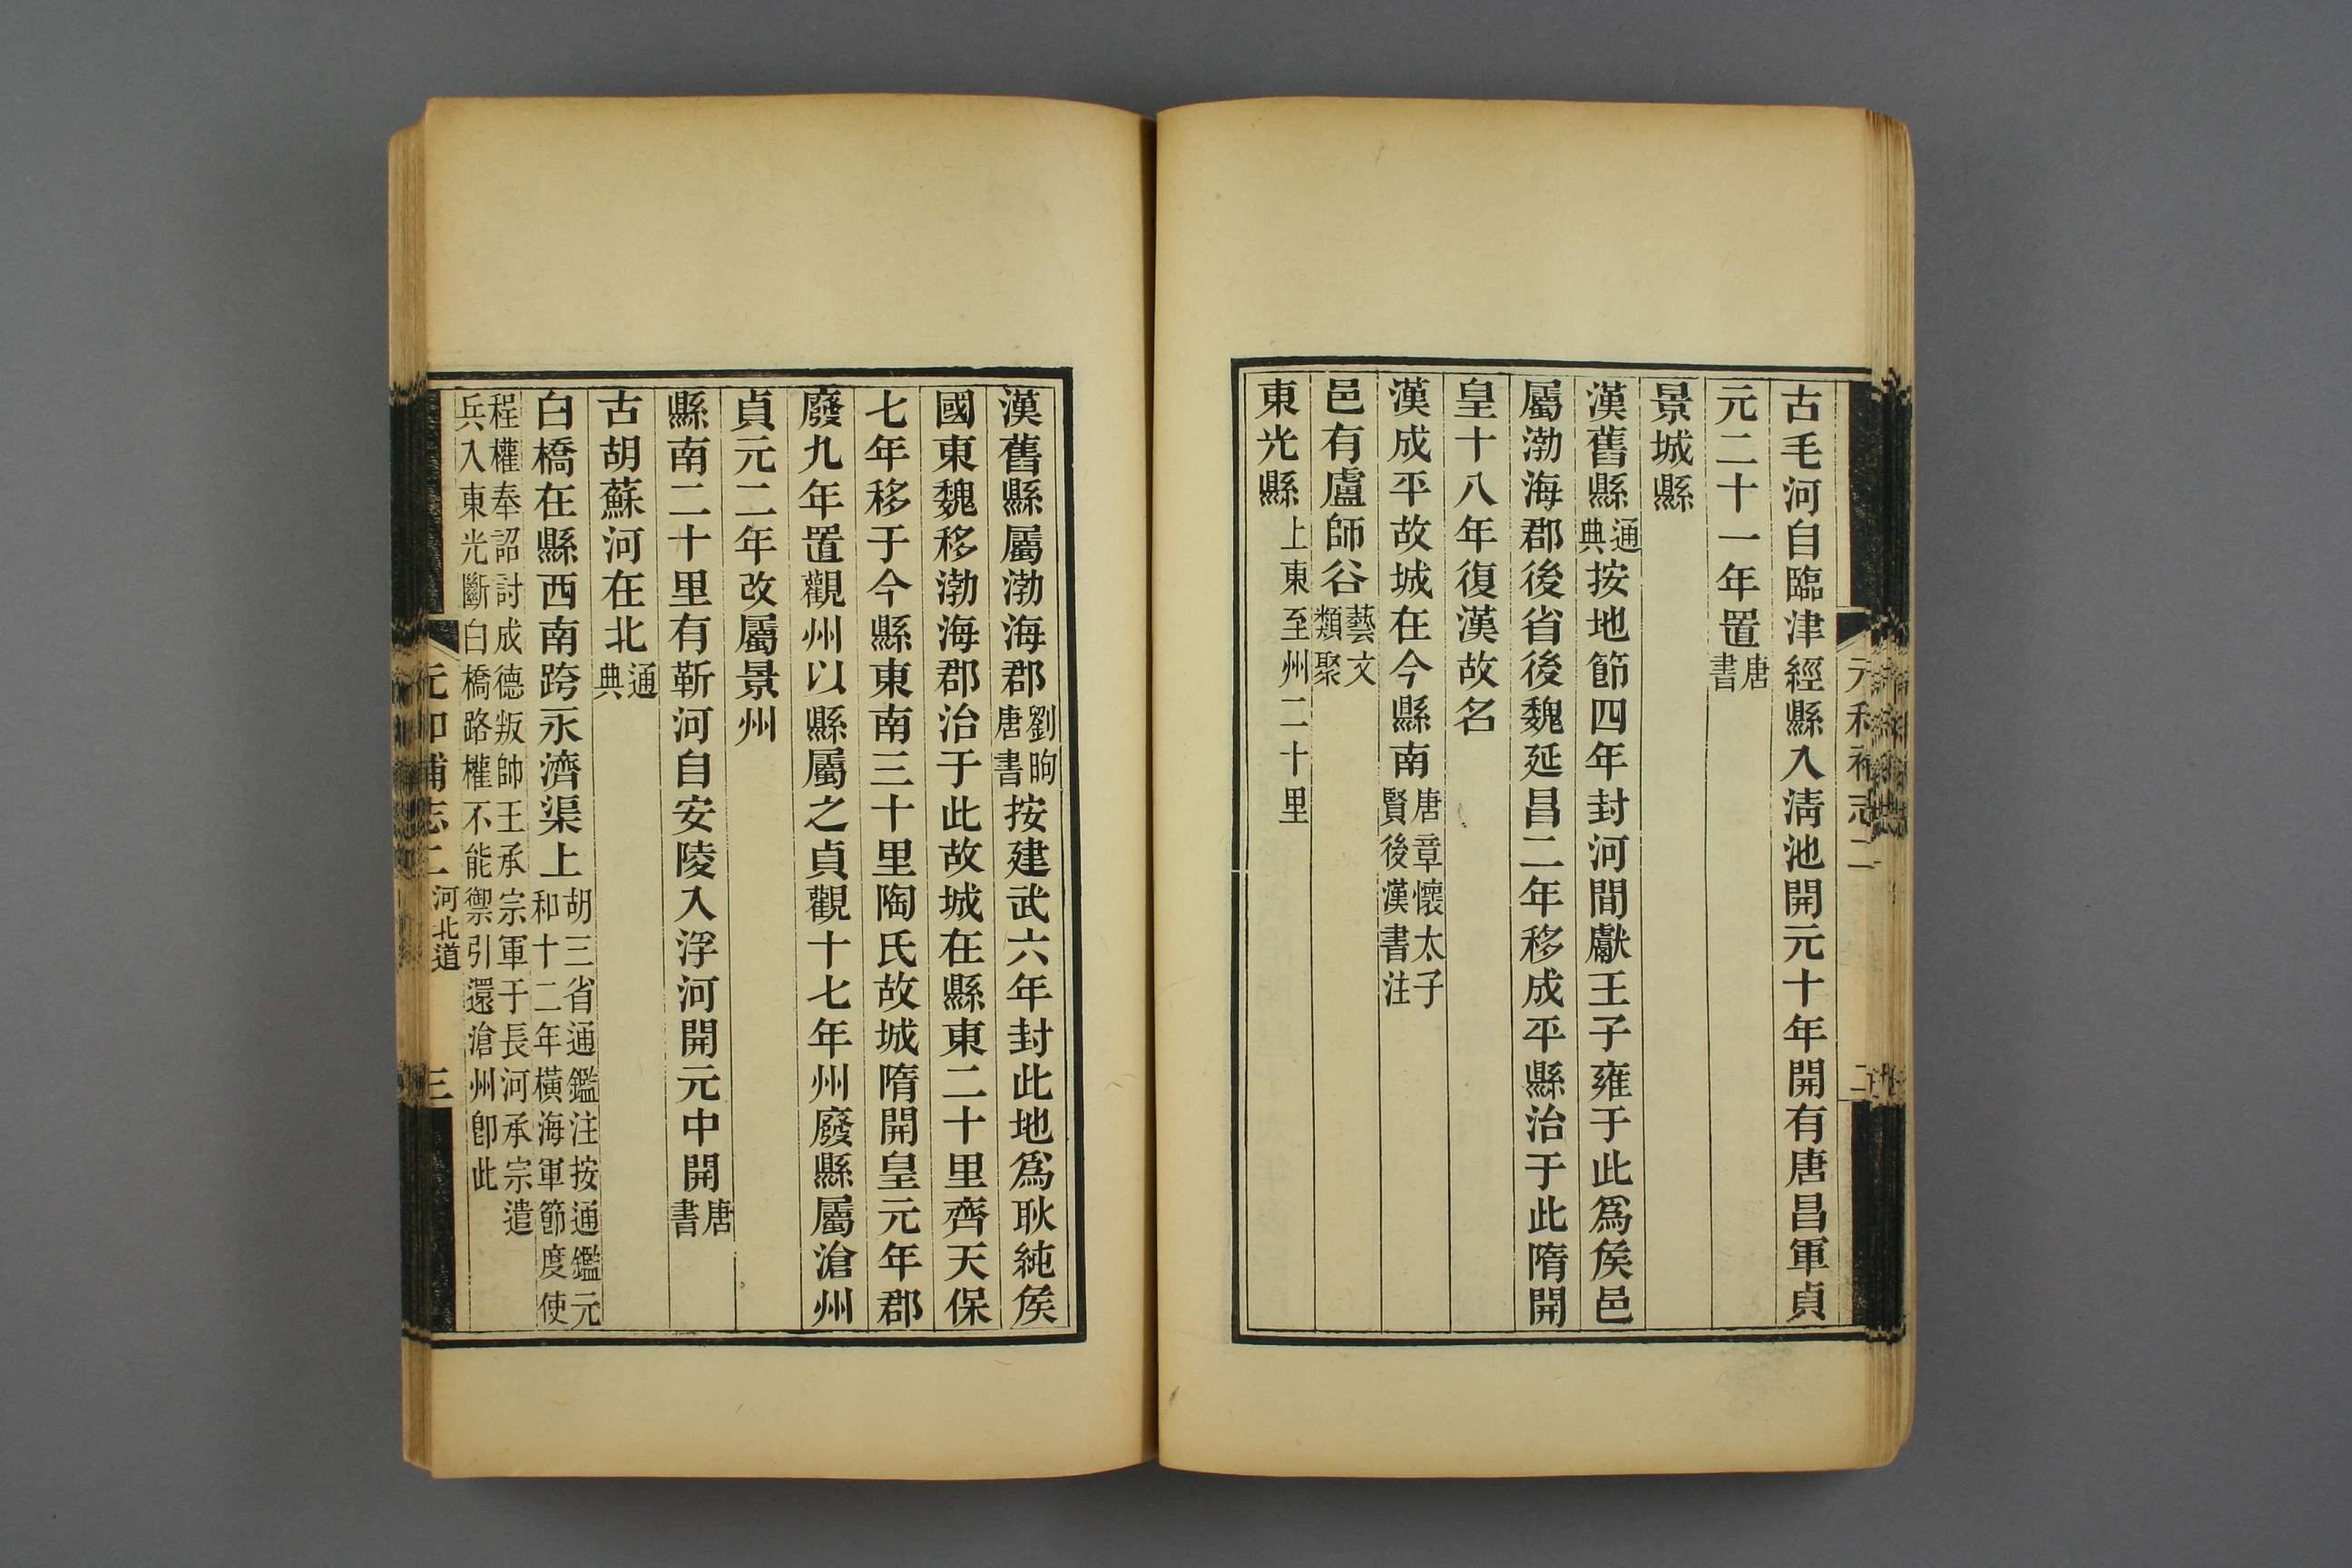 古毛河自臨津經縣入淸池開元十年開有唐昌軍貞
元二十一年置唐書
景城縣
漢舊縣通典按地節四年封河間獻王子雍于此爲矦邑
屬渤海郡後省後魏延昌二年移成平縣治于此隋開
皇十八年復漢故名
漢成平故城在今縣南唐章懷太子賢後漢書注
邑有盧師谷藝文類聚
東光縣上東至州二十里
漢舊縣屬渤海郡劉昫唐書按建武六年封此地爲耿純矦
國東魏移渤海郡治于此故城在縣東二十里齊天保
七年移于今縣東南三十里陶氏故城隋開皇元年郡
廢九年置觀州以縣屬之貞觀十七年州廢縣屬滄州
貞元二年改屬景州
縣南二十里有靳河自安陵入浮河開元中開唐書
古胡蘇河在北通典
白橋在縣西南跨永濟渠上胡三省通鑑注按通鑑元和十二年橫海軍節度使
程權奉詔討成德叛帥王承宗軍于長河承宗遣兵入東光斷白橋路權不能禦引還滄州卽此
元和補志二 河北道 三